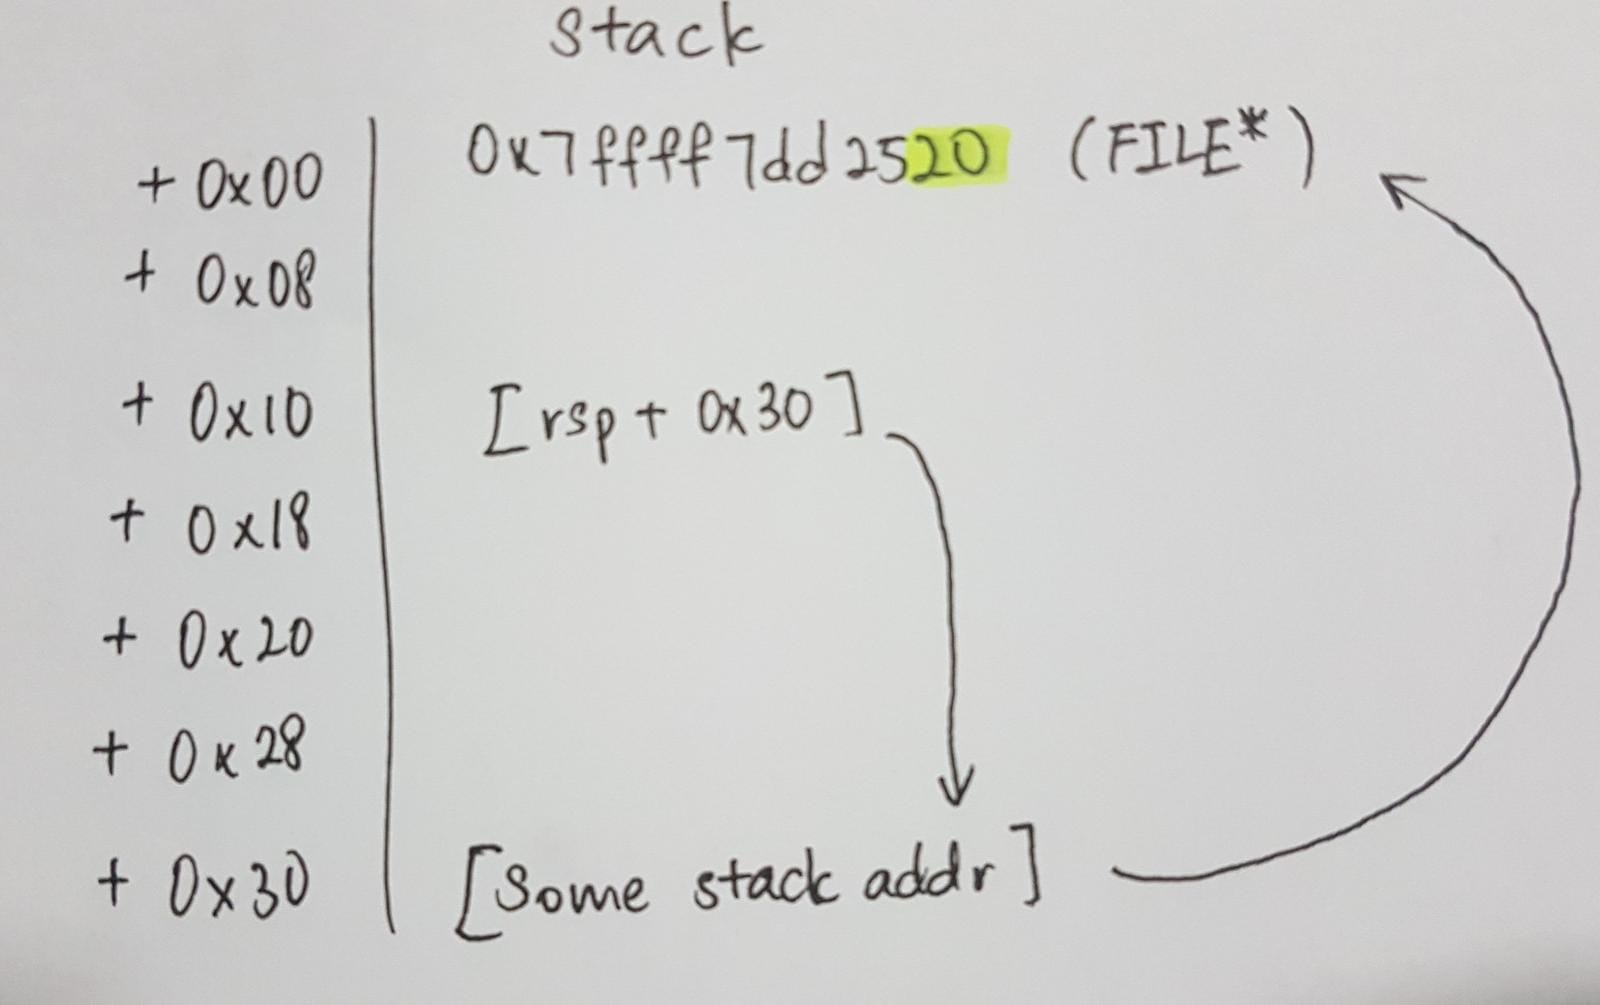 stack
+ 0x00 0x7ffff7dd2520 (FILE*)
+ 0x08
+ 0x10 [rsp + 0x30]
+ 0x18
+ 0x20
+ 0x28
+ 0x30 [Some stack addr]